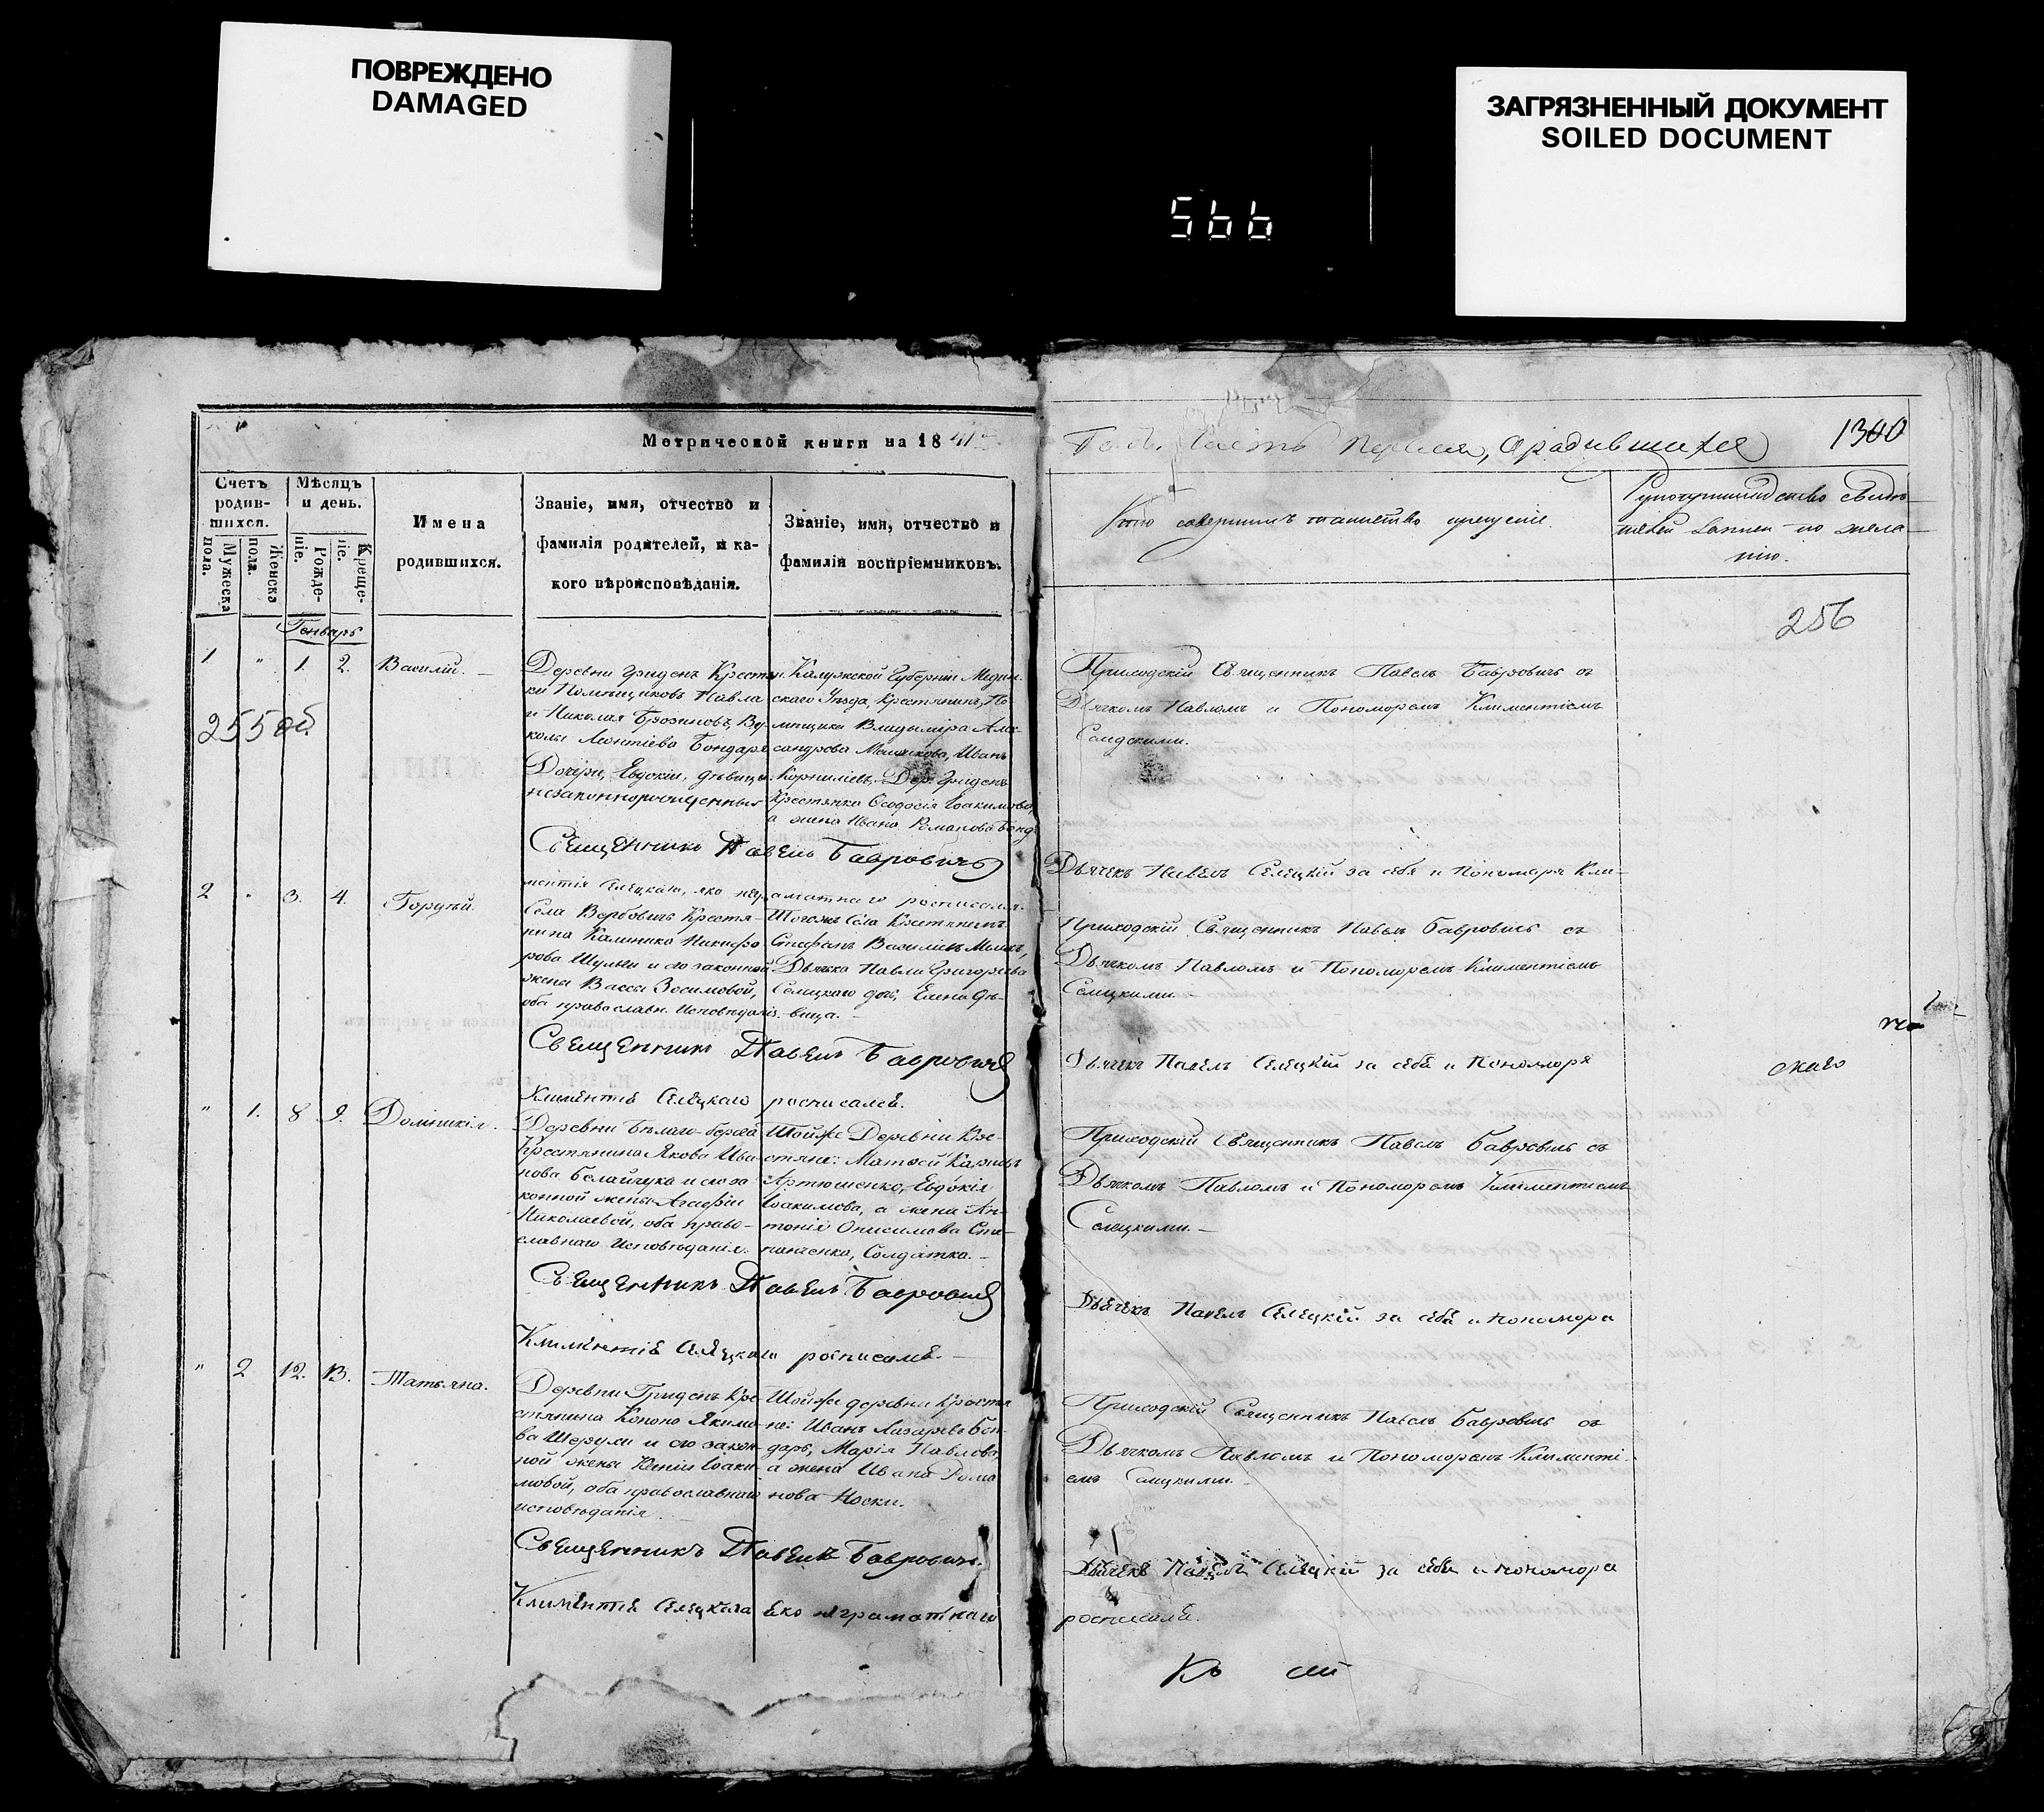 ПОВРЕЖДЕНО
DAMAGED
ЗАГРЯЗНЕННЫЙ ДОКУМЕНТ
SOILED DOCUMENT
566
Метрической книги на 1841
Часть Первая, о родившихся
1300
Счетъ родив-шихся.
Мужеска пола.
Женска пола.
Мѣсяцъ и день.
Рожде-ніе.
Креще-ніе.
Имена
родившихся.
Званіе, имя, отчество и
фамилія родителей, и ка-
кого вѣроисповѣданія.
Званіе, имя, отчество и
фамилія воспріемниковъ.
Кто совершилъ таинство крещенія.
Рукоприкладство свидѣ-
телей записи по жела-
нію.
256
Генварь
1 " 1. 2. Василій.
255 об
Деревни Гриденъ Крестьян
ки Помѣщиковъ Павла
и Николая
колы Леонтіева Бондаря
Дочери, Евдокіи, дѣвицы
незаконнорожденный
Калужской Губерніи Медын
скаго Уѣзда, Крестьянинъ, По
мѣщика Владиміра Алек-
сандрова Иванъ
Корниліевъ, Дер. Гриденъ
Крестьянка Ѳеодосія Іоакимова,
а жена Ивана Романова Бонд
Приходскій Священникъ Павелъ Бавровичъ съ
Дьячкомъ Павломъ и Пономоремъ Климентіемъ
Селецкими.
Священникъ Павелъ Бавровичъ
Дьячекъ Павелъ Селецкій за себя и Пономаря Кли-
ментія Селецкаго, яко неграматнаго росписался.
2 " 3. 4. Гордѣй.
Села Вербовичъ Крестья-
нина Калиника Никифо
рова Шульги и его законной
жены Вассы Зосимовой,
оба православ. Исповѣданія.
Тогожъ Села Крестьянинъ
Стефанъ Василіевъ
Дьячка Павла Григорьева
Селецкаго дочь, Елена дѣ-
вица.
Приходскій Священникъ Павелъ Бавровичъ съ
Дьячкомъ Павломъ и Пономоремъ Климентіемъ
Селецкими.
Священникъ Павелъ Бавровичъ
Дьячекъ Павелъ Селецкій за себя и Пономоря
Климентія Селецкаго росписался.
" 1. 8 9. Домникія.
Деревни Бѣлаго-берега
Крестьянина Якова Ива
нова Белайчука и его за
конной жены Агафіи
Николаевой, оба право-
славнаго Исповѣданія.
Тойже Деревни Кре-
стьяне: Матѳей Карповъ
Артюшенко, Евдокія
Іоакимова, а жена Ан-
тонія Онисимова Сте-
паненка, Солдатка.
Приходскій Священникъ Павелъ Бавровичъ съ
Дьячкомъ Павломъ и Пономоремъ Климентіемъ
Селецкими.
Священникъ Павелъ Бавровичъ
Дьячекъ Павелъ Селецкій за себя и пономора
Климентія Селецкаго росписался.
" 2 12. 13. Татьяна.
Деревни Гриденъ Кре
стьянина Конона Якимо
ва Шерухи и его закон
ной жены Ксеніи Іоаки
мовой, оба православнаго
исповѣданія.
Тойже деревни Крестья
не: Иванъ Лазаревъ Бон-
дарь, Марія Павлова,
а жена Ивана Рома
нова Носки.
Приходскій Священникъ Павелъ Бавровичъ съ
Дьячкомъ Павломъ и Пономоремъ Клименті-
емъ Селецкими.
Священникъ Павелъ Бавровичъ.
Дьячекъ Павелъ Селецкій за себя и пономора
Климентія Селецкаго яко неграматнаго
росписался.